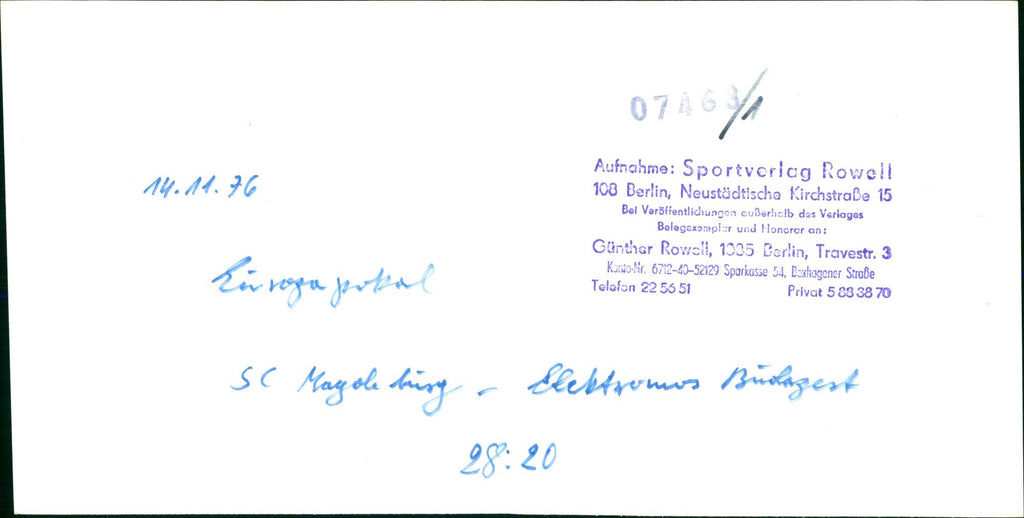 07463/1
14.11.76
Aufnahme: Sportverlag Rowell
108 Berlin, Neustädtische Kirchstraße 15
Bei Veröffentlichungen außerhalb des Verlages
Belegexemplar und Honorar an:
Günther Rowell, 1035 Berlin, Travestr. 3
Konto-Nr. 6712-40-52129 Sparkasse 54, Boxhagener Straße
Telefon 22 56 51 Privat 5 88 38 70
Europapokal
SC Magdeburg - Elektromos Budapest
28:20